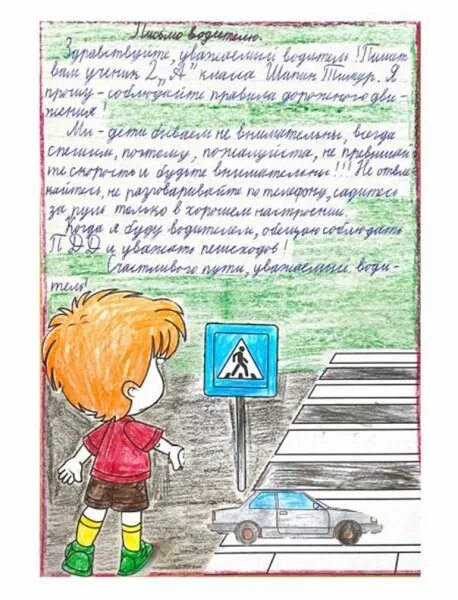 Письмо водителю.
Здравствуйте, уважаемый водитель! Пишет
вам ученик 2 „А" класса Шапин Тимур. Я
прошу - соблюдайте правила дорожного дви-
жения!
Мы - дети бываем не внимательны, всегда
спешим, поэтому, пожалуйста, не превышай
те скорость и будьте внимательны!!! Не отвле
кайтесь, не разговаривайте по телефону, садитесь
за руль только в хорошем настроении.
Когда я буду водителем, обещаю соблюдать
ПДД и уважать пешеходов!
Счастливого пути, уважаемый води-
тель!